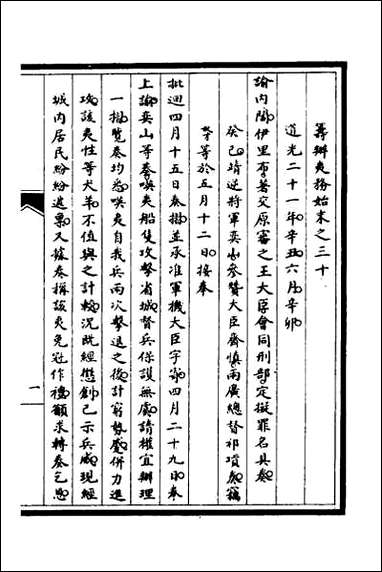 籌辦夷務始末卷之三十
道光二十一年辛丑六月辛卯
諭內閣伊里布著交原審之王大臣會同刑部定擬罪名具奏
癸巳靖逆將軍奕山參贊大臣齊慎兩廣總督祁𡎴奏竊
等於五月十二日接奉
批迴四月十五日奏摺並承准軍機大臣字寄四月二十九日奉
上諭奕山等奏嘆夷船隻攻擊省城督兵保護無虞請權宜辦理
一摺覽奏均悉嘆夷自我兵兩次擊退之後計窮勢蹙併力進
攻該夷性等犬羊不值與之計較況既經懲創已示兵威現經
城內居民紛紛遞稟又據奏稱該夷免冠作禮籲求轉奏乞恩
一